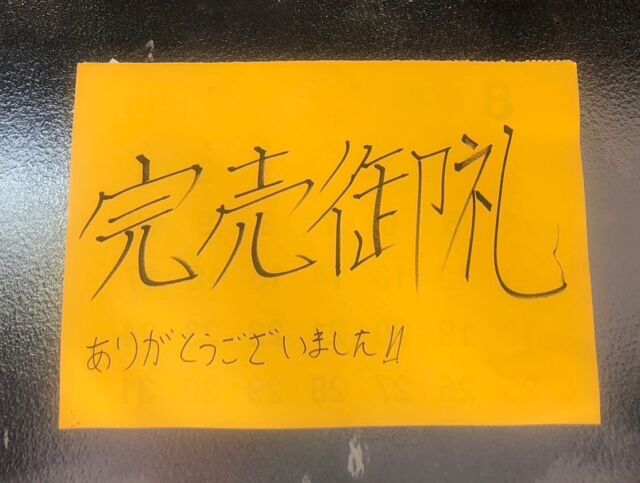 完売御礼
ありがとうございました!!